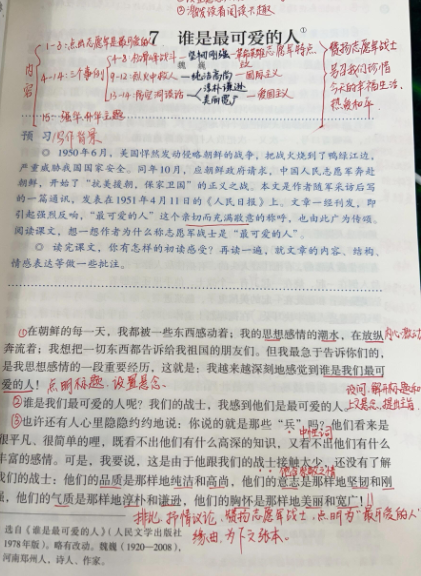 ②激发读者阅读兴趣
7 谁是最可爱的人①
内容
1-3：点出志愿军是最可爱的人
4-14：三个事例
4-8：松骨峰战斗—坚韧刚强—革命英雄主义
9-12：烈火中救人—纯洁高尚—国际主义
13-14：防空洞谈话 淳朴谦逊 美丽宽广—爱国主义
志愿军特点
赞扬志愿军战士
今天的幸福生活，
热爱和平
15：
预 习 写作背景
○ 1950年6月，美国悍然发动侵略朝鲜的战争，把战火烧到了鸭绿江边，
严重威胁我国国家安全。同年10月，应朝鲜政府请求，中国人民志愿军奔赴
朝鲜，开始了“抗美援朝，保家卫国”的正义之战。本文是作者随军采访后写
的一篇通讯，发表在1951年4月11日的《人民日报》上。文章一经刊发，即
引起强烈反响，“最可爱的人”这个亲切而充满敬意的称呼，也由此广为传颂。
阅读课文，想一想作者为什么称志愿军战士是“最可爱的人”。
○ 读完课文，你有怎样的初读感受？再读一遍，就文章的内容、结构、
情感表达等做一些批注。
①在朝鲜的每一天，我都被一些东西感动着；我的思想感情的潮水，在放纵
奔流着；我想把一切东西都告诉给我祖国的朋友们。但我最急于告诉你们的，
是我思想感情的一段重要经历，这就是：我越来越深刻地感觉到谁是我们最可
爱的人！点明标题，设置悬念
设问，解开标题和
②谁是我们最可爱的人呢？我们的战士，我感到他们是最可爱的人。
上文悬念，提出主旨
③也许还有人心里隐隐约约地说：你说的就是那些“兵”吗？他们看来是
中性词
很平凡、很简单的哩，既看不出他们有什么高深的知识，又看不出他们有什么
丰富的感情。可是，我要说，这是由于他跟我们的战士接触太少，还没有了解
我们的战士：他们的品质是那样地纯洁和高尚，他们的意志是那样地坚韧和刚
强，他们的气质是那样地淳朴和谦逊，他们的胸怀是那样地美丽和宽广！
排比，抒情议论，赞扬志愿军战士，点明为“最可爱的人”
缘由，为下文张本。
选自《谁是最可爱的人》（人民文学出版社
1978年版）。略有改动。魏巍（1920—2008），
河南郑州人，诗人、作家。